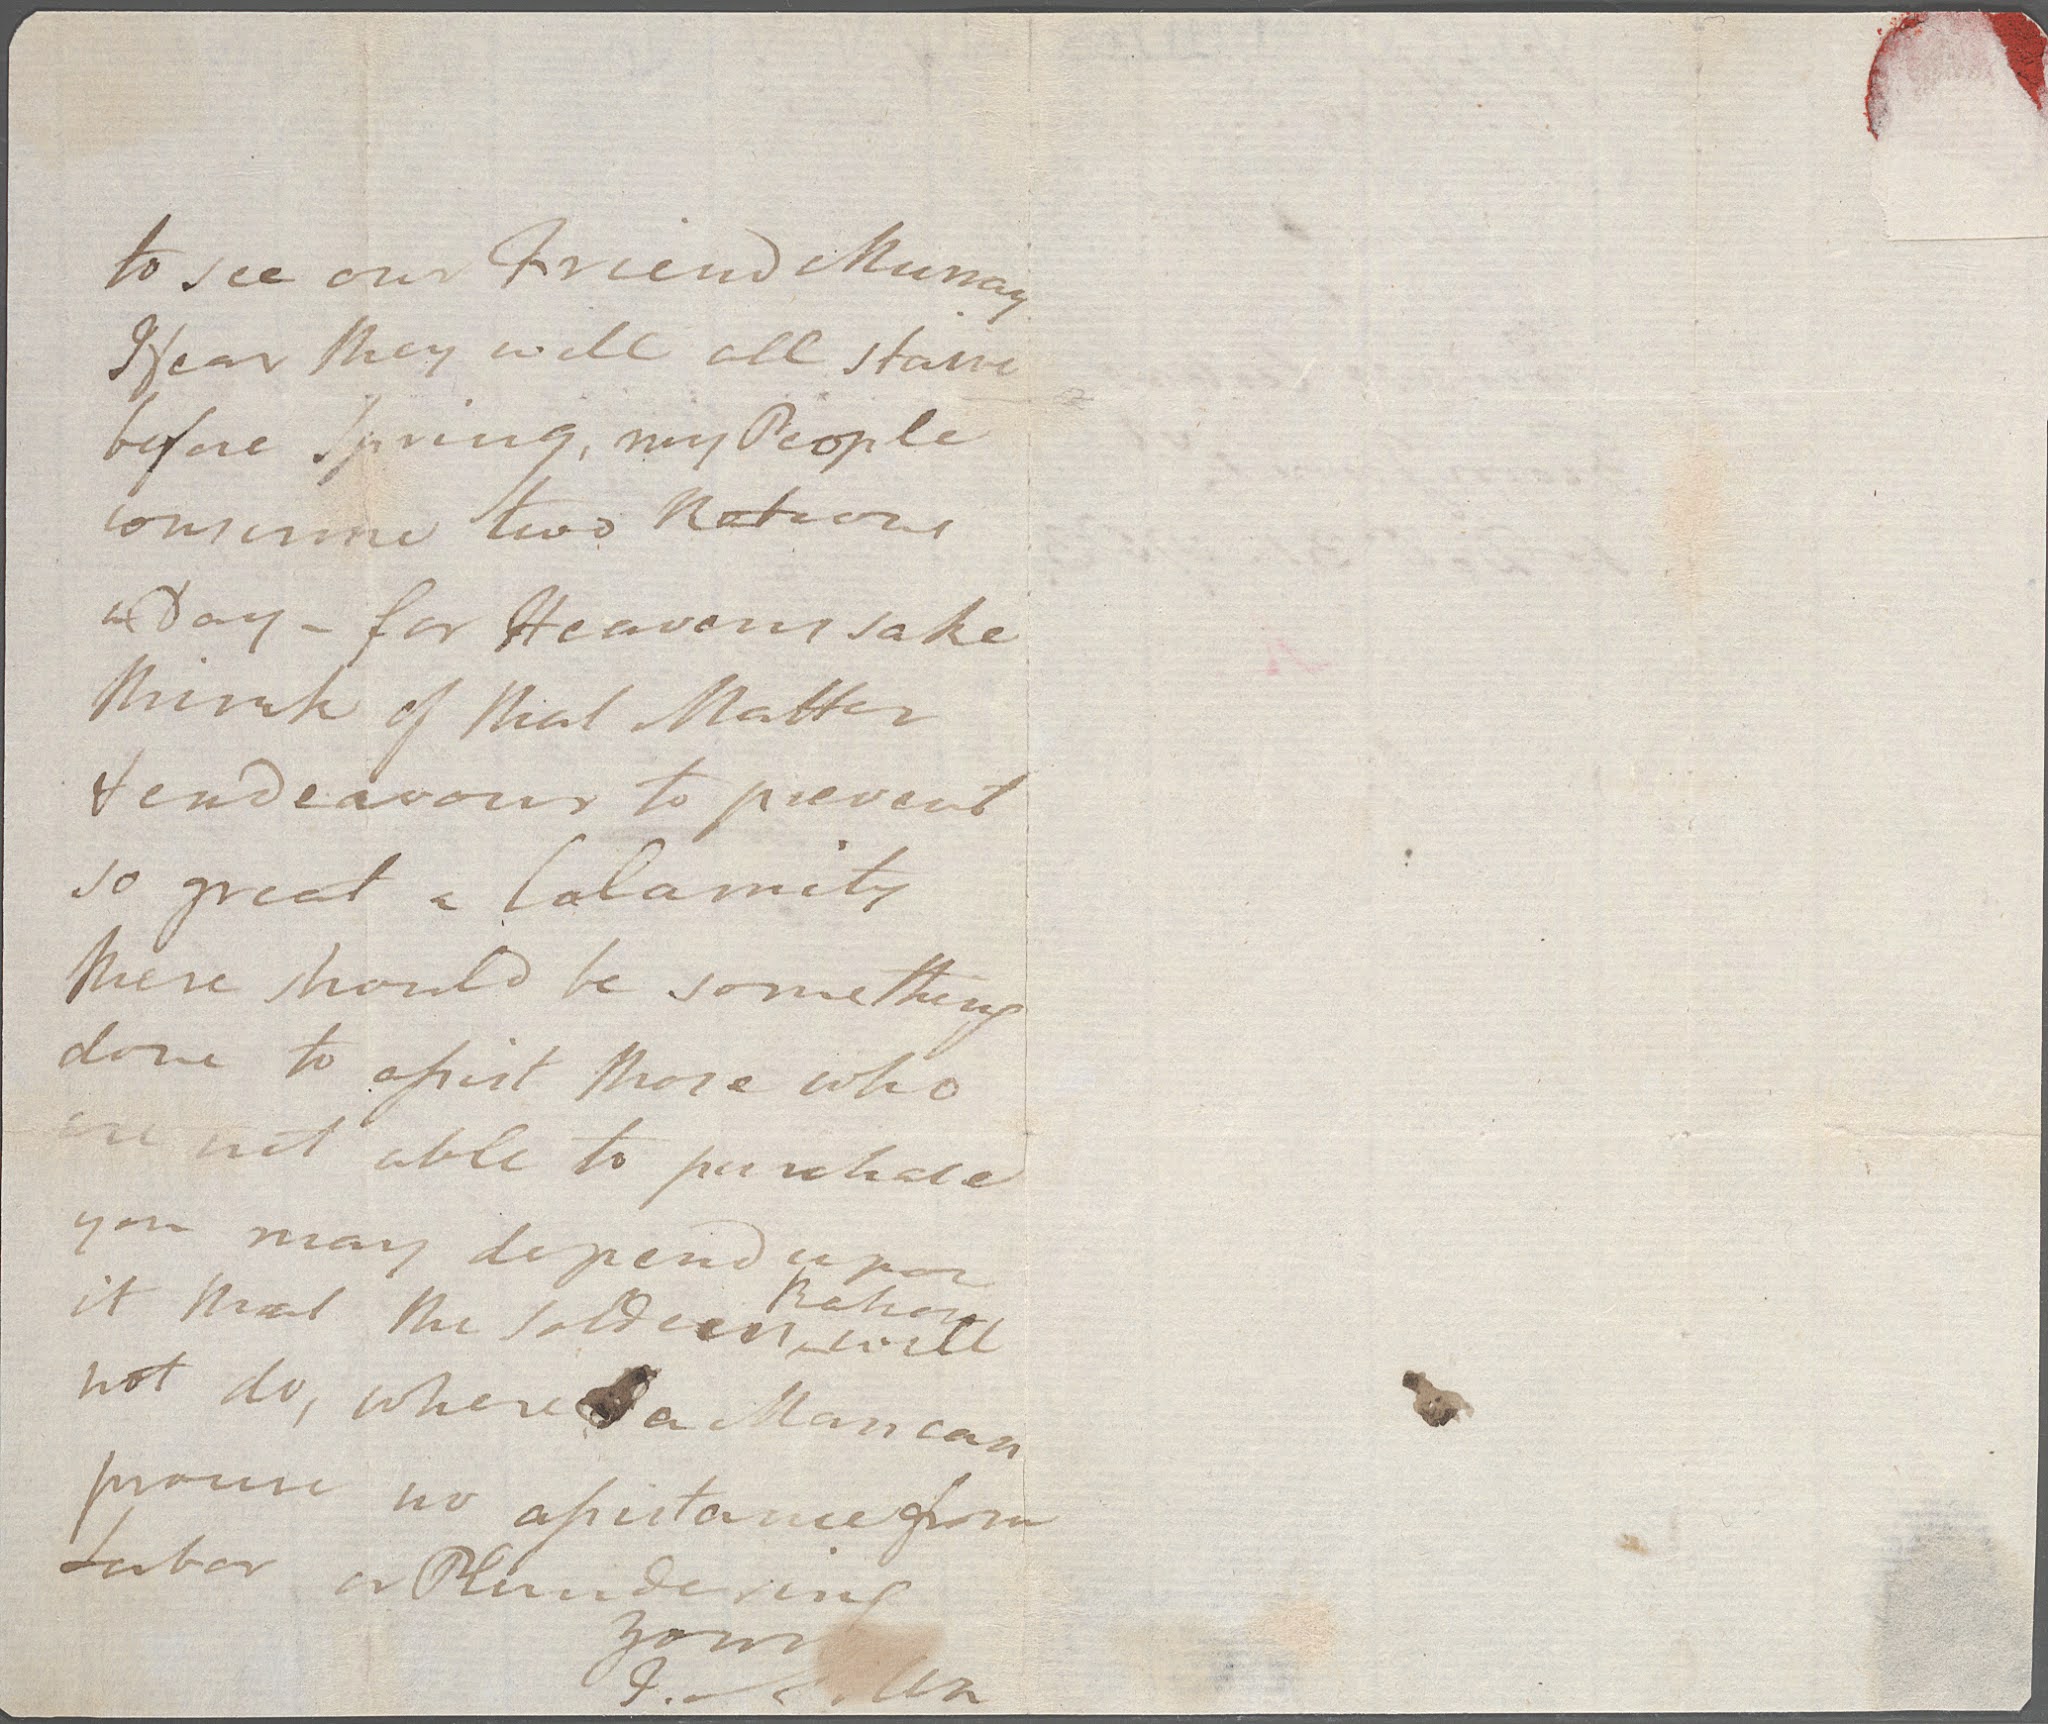 to see our Friend Murray
I fear they will all starve
before Spring, my People
consume two Rations
a Day – for Heavens sake
think of that Matter
& endeavour to prevent
so great a Calamity
there should be something
done to assist those who
are not able to purchase
you may depend upon
it that the Soldiers Ration will
not do, where a Man can
procure no assistance from
Labor or Plundering
Yours